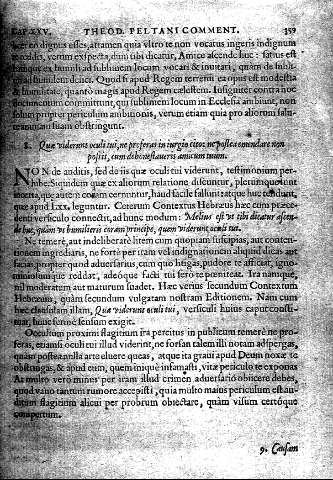 CAP. XXV. THEOD. PELTANI COMMENT. 359
dignus esses, attamen quia vltro te non vocatus ingeris indignum
verùm exspecta, dum tibi dicatur, Amice ascende huc: satius est
ex humili ad sublimem locum vocari & inuitari, quam de subli-
humilem deiici. Quod si apud Regem terrenum opus est modestia
& humilitate, quanto magis apud Regem cælestem. Insigniter contra hoc
documentum committunt, qui sublimem locum in Ecclesia ambiunt, non
solum propter periculum ambitionis, verum etiam quia pro aliorum salu-
animam suam obstringunt.
8. Quæ viderunt oculi tui, ne proferas in iurgio citò: ne postea emendare non
possis, cum dehonestaueris amicum tuum.
NON de auditis, sed de iis quæ oculi tui viderunt, testimonium per-
hibe. Siquidem quæ ex aliorum relatione dicuntur, plerumque sunt
incerta, quæ autem coram cernuntur, haud facile fallunt: atque huc tendunt,
quæ apud Lxx. leguntur. Ceterum Contextus Hebræus hæc cum præce-
denti versiculo connectit, ad hunc modum: Melius est vt tibi dicatur ascen-
de huc, quàm vt humilieris coram principe, quem viderunt oculi tui.
Ne temerè, aut indeliberatè litem cum quopiam suscipias, aut conten-
tionem ingrediaris, ne fortè per iram vel indignationem aliquid dicas aut
facias propter quod aduersarius, cum quo litigas, pudore te afficiat, igno-
miniosumque reddat, adeóque facti tui serò te pœniteat. Ira namque,
nil moderatum aut maturum suadet. Hæc verius secundum Contextum
Hebræum, quàm secundum vulgatam nostram Editionem. Nam cum
hæc clausulam illam, Quæ viderunt oculi tui, versiculi huius caput consti-
tuat, hunc fermè sensum exigit.
Occultum proximi flagitium ira percitus in publicum temerè ne pro-
feras, etiamsi oculi tui illud viderint, ne forsan talem illi notam adspergas,
quam postea nulla arte eluere queas, atque ita graui apud Deum noxæ te
obstringas, & apud eum, quem iniquè infamasti, vitæ periculo te exponas
At multo verò minus per iram illud crimen aduersario obiicere debes,
quod vano tantum rumore accepisti, quia multo maius periculum est au-
ditum flagitium alicui per probrum obiectare, quàm visum certóque
compertum.
9. Causam